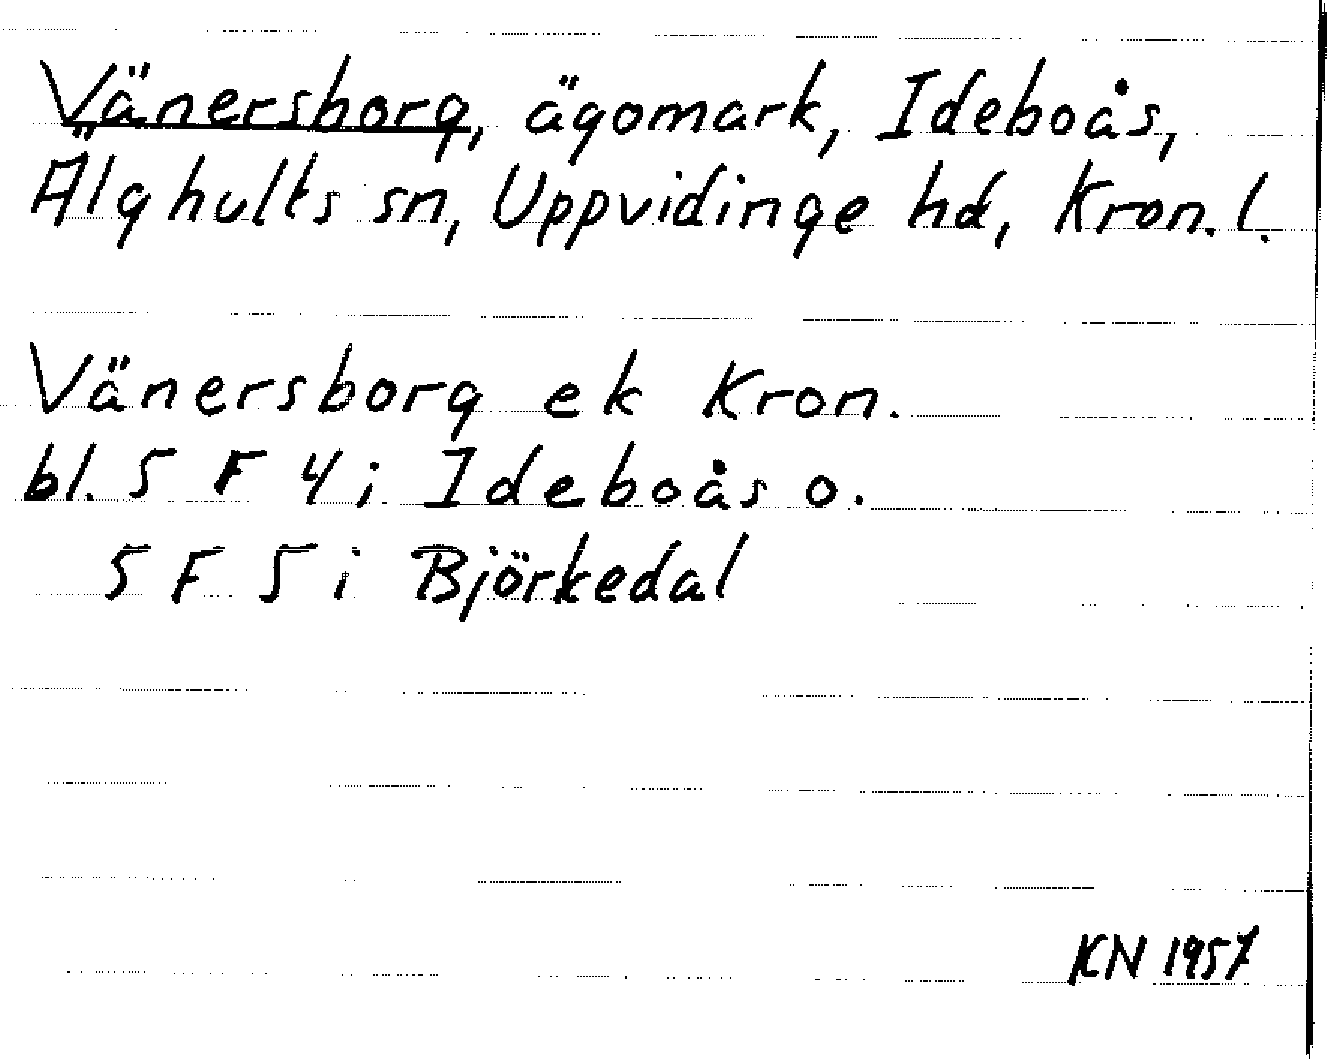 Vänersborg, ägomark, Ideboås,
Älghults sn, Uppvidinge hd, Kron. l.
Vänersborg ek Kron.
bl. 5 F 4 i Ideboås o.
5 F 5 i Björkedal
KN 1957